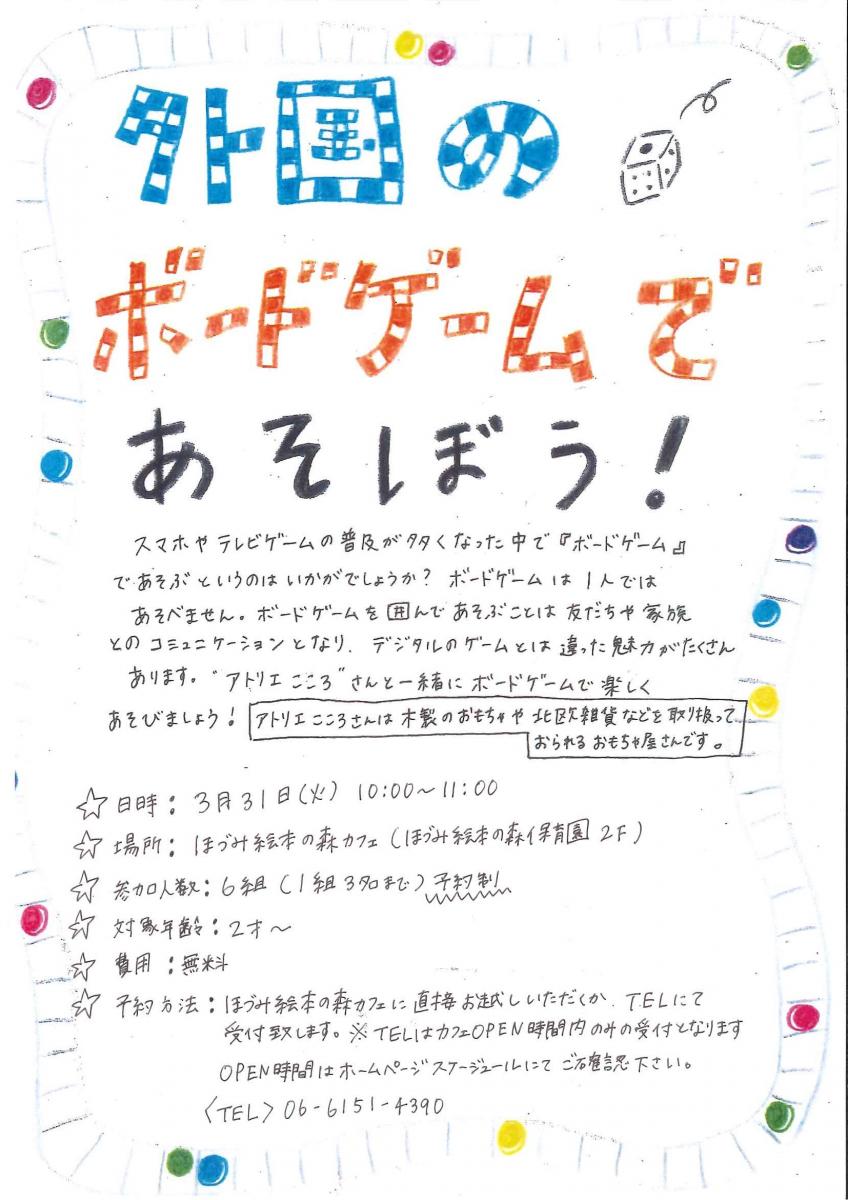 外国の
ボードゲームで
あそぼう！
スマホやテレビゲームの普及が多くなった中で『ボードゲーム』
であそぶというのはいかがでしょうか？ ボードゲームは1人では
あそべません。ボードゲームを囲んであそぶことは友だちや家族
とのコミュニケーションとなり、デジタルのゲームとは違った魅力がたくさん
あります。"アトリエこころ"さんと一緒にボードゲームで楽しく
あそびましょう！ アトリエこころさんは木製のおもちゃや北欧雑貨などを取り扱って
おられるおもちゃ屋さんです。
☆日時：3月31日(火) 10:00～11:00
☆場所：ほづみ絵本の森カフェ(ほづみ絵本の森保育園2F)
☆参加人数：6組(1組3名まで)予約制
☆対象年齢：2才～
☆費用：無料
☆予約方法：ほづみ絵本の森カフェに直接お越しいただくか、TELにて
受付致します。※TELはカフェOPEN時間内のみの受付となります
OPEN時間はホームページスケージュールにてご確認下さい。
〈TEL〉06-6151-4390